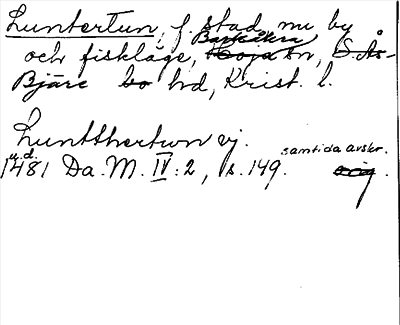 Luntertun, f. stad, nu by
och fiskläge, Barkåkra sn, S. Ås-
Bjäre hd, Krist. l.
Luntthertwn vj.
u.d.
1481 Da. M. IV: 2, s. 149. samtida avskr.
orig.